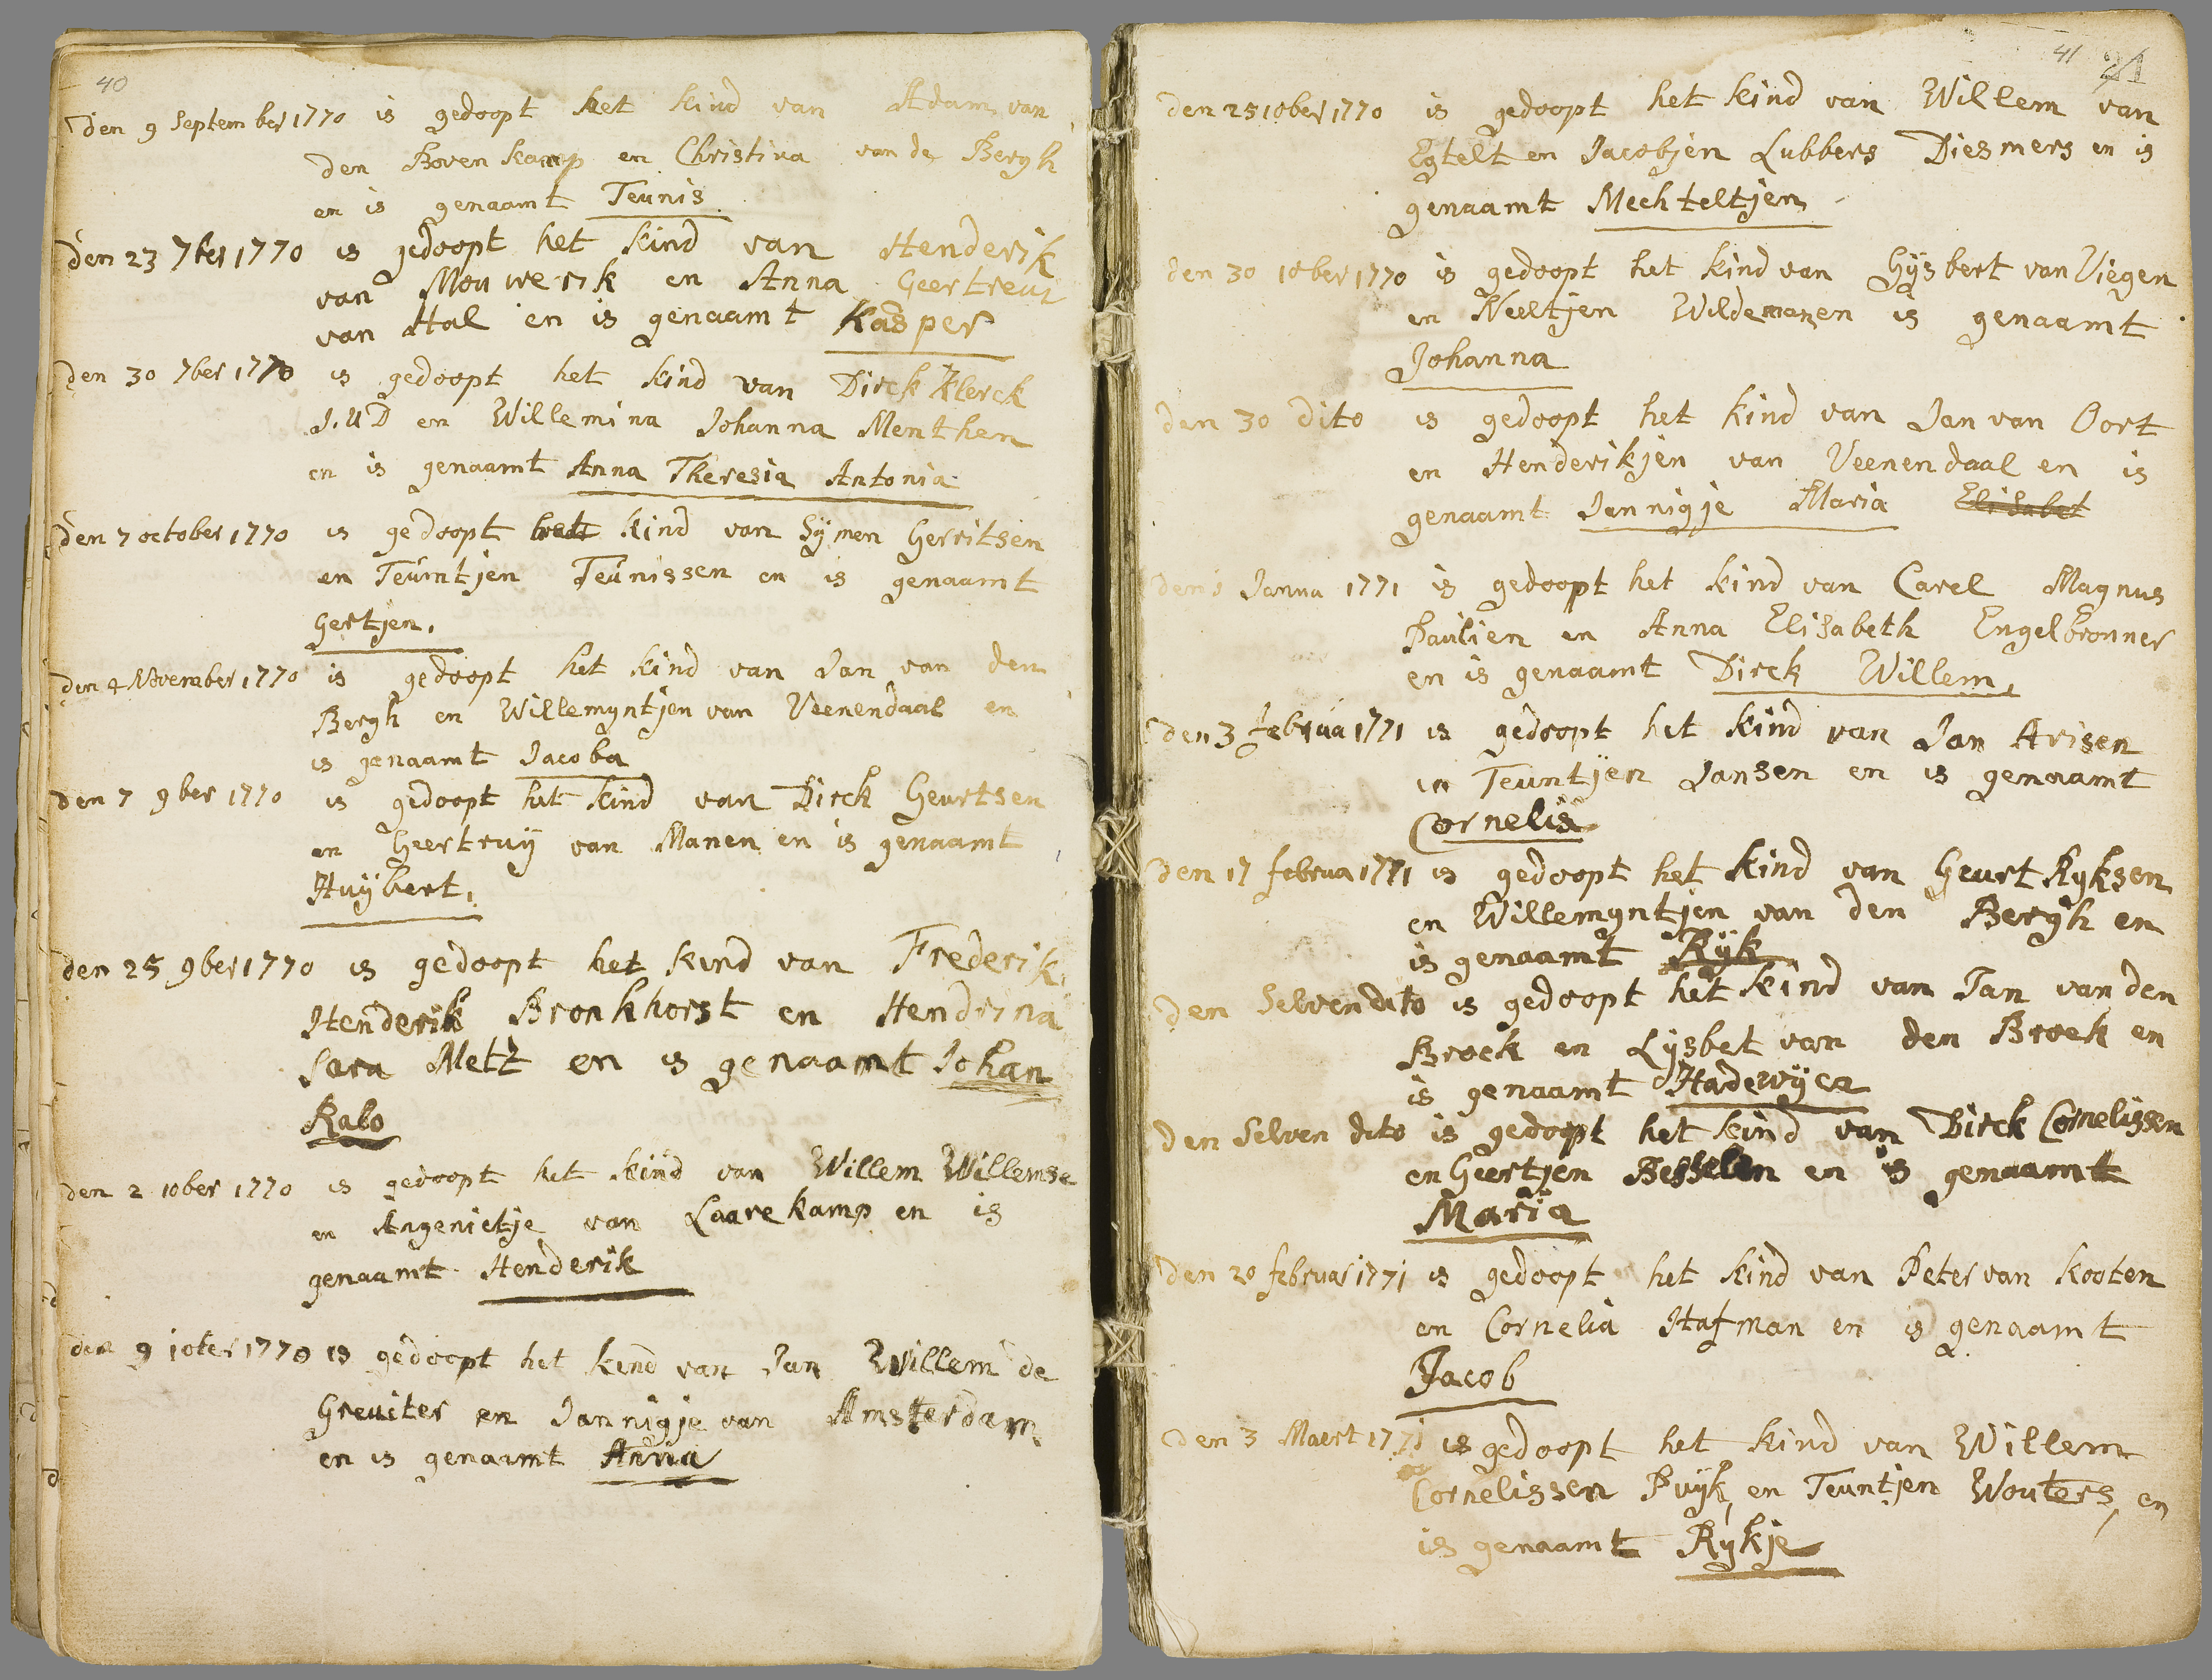 40
den 9 September 1770 is gedoopt het kind van Adam van
den Boven kamp en Christina van de Bergh
en is genaamt Teunis
den 23 7ber 1770 is gedoopt het kind van Henderik
van Mou werik en Anna Geertreut
van Hal en is genaamt Kasper
den 30 7ber 1770 is gedoopt het kind van Dirck Klerck
J.U D en Willemina Johanna Menthen
en is genaamt Anna Theresia Antonia
den 7 october 1770 is gedoopt het kind van Symen Gerritsen
en Teuntjen Teunissen en is genaamt
Gertjen.
den 4 November 1770 is gedoopt het kind van Jan van den
Bergh en Willemyntjen van Veenendaal en
is genaamt Jacoba
den 7 9ber 1770 is gedoopt het kind van Dirck Geurtsen
en Geertruij van Manen en is genaamt
Huijbert.
den 25 9ber 1770 is gedoopt het kind van Frederik
Henderik Bronkhorst en Hendrina
Sara Metz en is genaamt Johan
Rabo
den 2 10ber 1770 is gedoopt het kind van Willem Willemse
en Angenietje van Laare kamp en is
genaamt Henderik
den 9 10ber 1770 is gedoopt het kind van Jan Willem de
Greuiter en Jannigje van Amsterdam
en is genaamt Anna
41
den 25 10ber 1770 is gedoopt het kind van Willem van
Egtelt en Jacobjen Lubbers Diesmers en is
genaamt Mechteltjen
den 30 10ber 1770 is gedoopt het kind van Gijsbert van Viegen
en Neeltjen Wildemanen is genaamt
Johanna
den 30 dito is gedoopt het kind van Jan van Oort
en Henderikjen van Veenendaal en is
genaamt Jannigje Maria Elisabet
den Janua 1771 is gedoopt het kind van Carel Magnus
Paulien en Anna Elisabeth Engelbronner
en is genaamt Dirck Willem.
den 3 februa 1771 is gedoopt het kind van Jan Arisen
en Teuntjen Jansen en is genaamt
Cornelis
den 17 februa 1771 is gedoopt het kind van Geurt Ryksen
en Willemyntjen van den Bergh en
is genaamt Rijk
den Selven dito is gedoopt het kind van Jan van den
Broek en Lijsbet van den Broek en
is genaamt Hadewijca
den Selven dito is gedoopt het kind van Dirck Cornelissen
en Geertjen Besselen en is genaamt
Maria
den 20 februar 1771 is gedoopt het kind van Peter van Kooten
en Cornelia Hafman en is genaamt
Jacob
den 3 Maert 1771 is gedoopt het kind van Willem
Cornelissen Puijk, en Teuntjen Wouters, en
is genaamt Rijkje